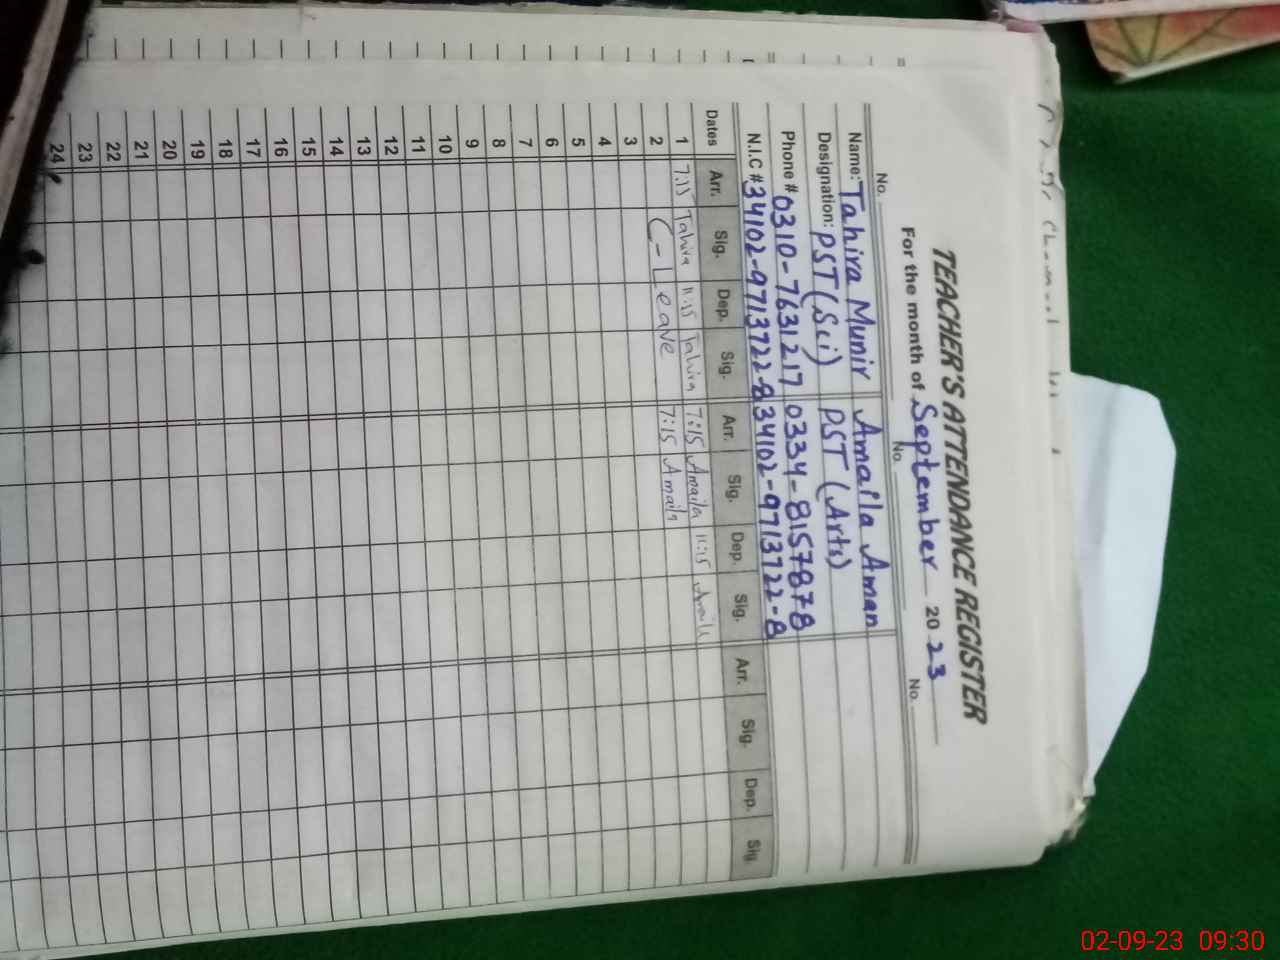 TEACHER'S ATTENDANCE REGISTER
For the month of September 2023
No. No. No.
Name: Tahira Munir Amaila Aman
Designation: PST (Sci) PST (Arts)
Phone # 0310-7631217 0334-8157878
N.I.C # 34102-9713722-8 34102-9713722-8
Dates Arr. Sig. Dep. Sig. Arr. Sig. Dep. Sig. Arr. Sig. Dep. Sig.
1 7:15 Tahira 11:15 Tahira 7:15 Amaila 11:15 Amaila
2 C-Leave 7:15 Amaila
3
4
5
6
7
8
9
10
11
12
13
14
15
16
17
18
19
20
21
22
23
24
02-09-23 09:30